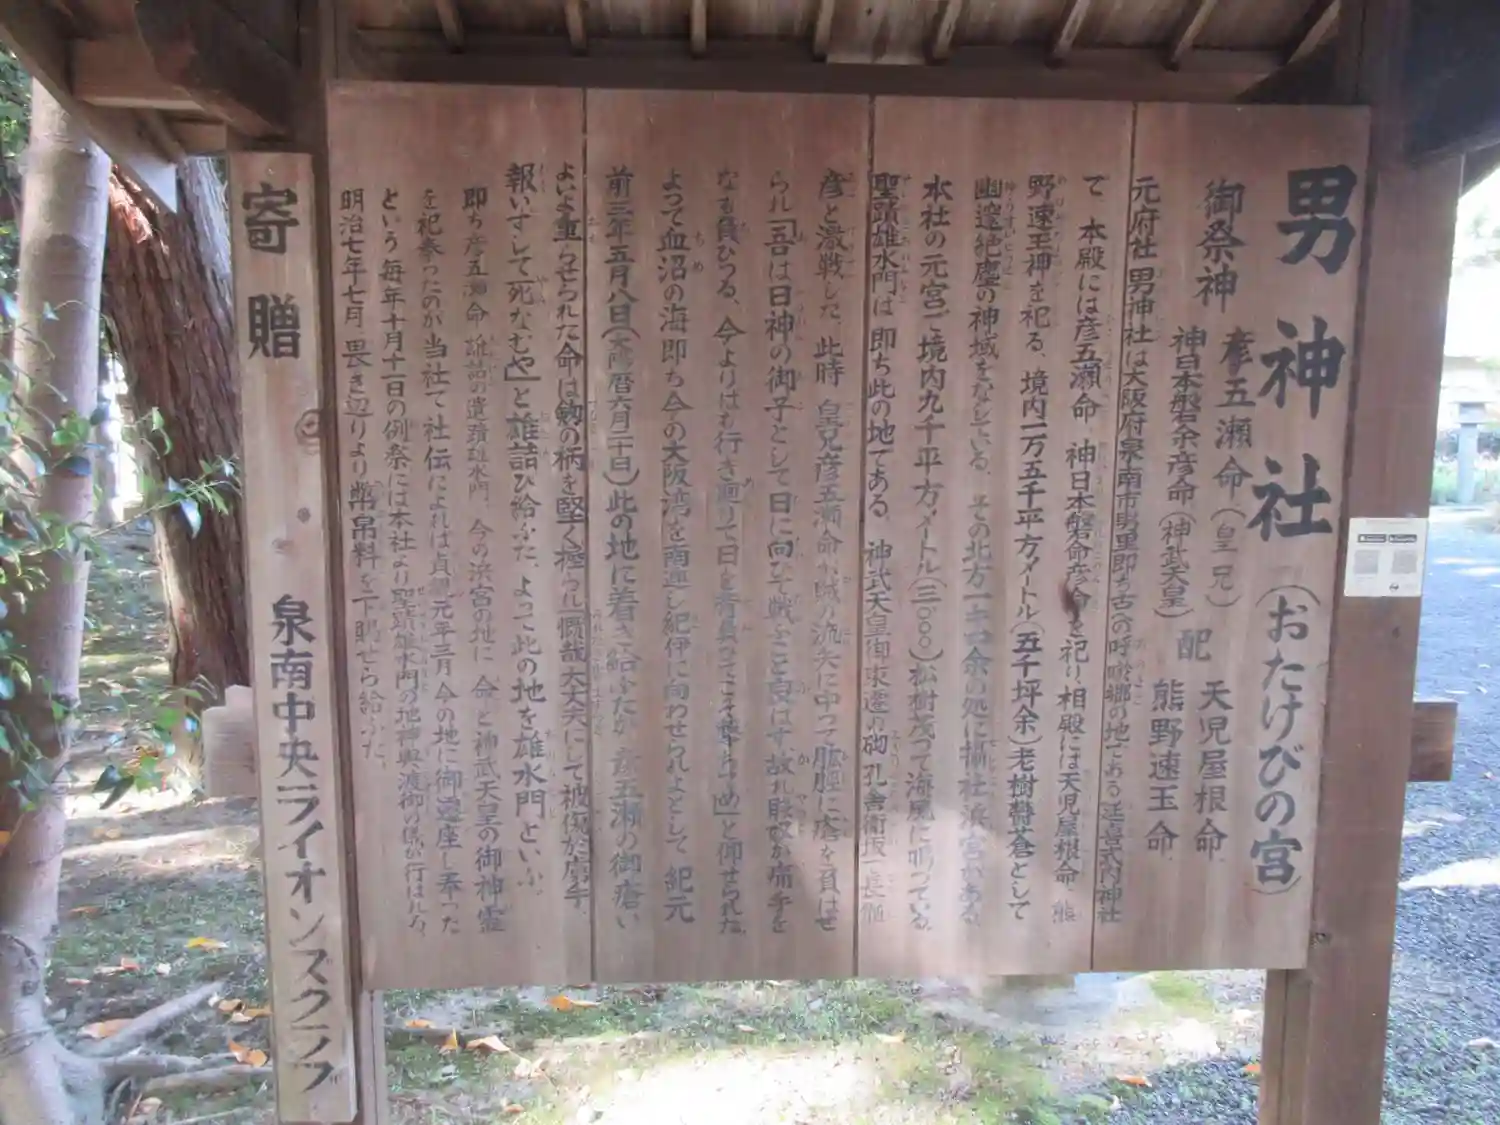 男神社(おたけびの宮)
御祭神
彦五瀬命(皇兄)
神日本磐余彦命(神武天皇)
配
天児屋根命
熊野速玉命
元府社 男神社は大阪府泉南市男里即ち古への呼唹郷の地である 延喜式内神社
で 本殿には彦五瀬命 神日本磐命彦命を祀り 相殿には天児屋根命 熊
野速玉神を祀る、境内一万五千平方メートル(五千坪余)老樹欝蒼として
幽邃絶塵の神域をなしている、その北方一キロ余の処に摂社浜宮がある
本社の元宮で境内九千平方メートル(三〇〇〇)松樹茂つて海風に鳴つている、
聖蹟雄水門は 即ち此の地である、神武天皇御東遷の砌 孔舎衛坂に長髄
彦と激戦した、此時 皇兄彦五瀬命が賊の流矢に中つて肱脛に瘡を負はせ
られ「吾は日神の御子として日に向ひて戦ふこと良はず故れ賤奴が痛手を
なも負ひつる、今よりはも行き廻りて日を背負ひてこそ撃ちてめ」と仰せられた、
よつて血沼の海即ち今の大阪湾を南進し紀伊に向わせられよとして 紀元
前三年五月八日(太陽暦六月二十日)此の地に着き給ふたが 彦五瀬の御瘡い
よいよ重らせられた命は劔の柄を堅く握られ「慨哉大丈夫にして被傷於虜手、
報いずして死なむや」と雄詰び給ふた、よつて此の地を雄水門といふ、
即ち彦五瀬命 雄詰の遺蹟雄水門、今の浜宮の地に 命と神武天皇の御神霊
を祀奉つたのが当社で社伝によれば貞観元年三月今の地に御遷座し奉つた
という 毎年十月十一日の例祭には本社より聖蹟雄水門の地神輿渡御の儀が行はれる、
明治七年七月 畏き辺りより幣帛料を下賜せら給ふた、
寄贈 泉南中央ライオンズクラブ